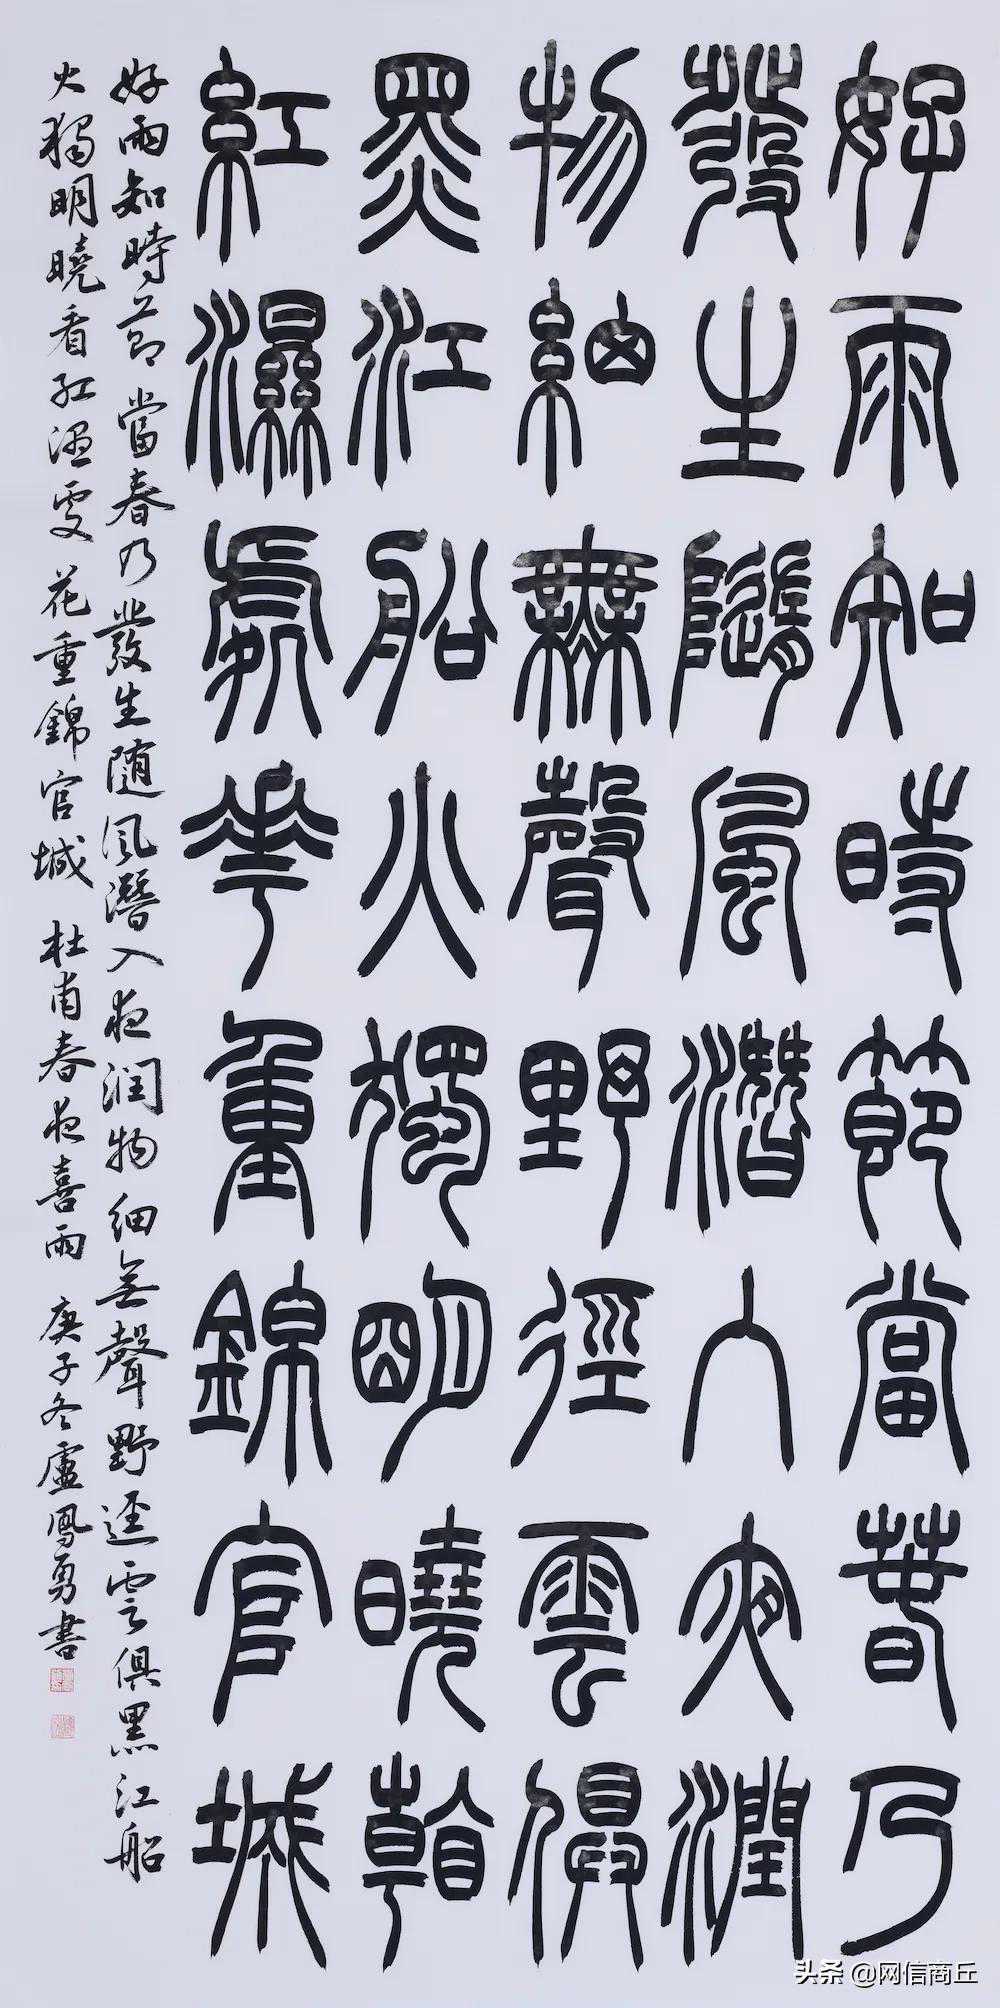 好雨知時節當春乃
發生隨風潛入夜潤
物細無聲野徑雲俱
黑江船火獨明曉看
紅濕處華重錦官城
好雨知時節當春乃發生随風潛入夜润物细無聲野逕雲俱黑江船
火獨明曉看紅溼處花重錦官城 杜甫春夜喜雨 庚子冬盧鳳勇書
头条 @网信商丘